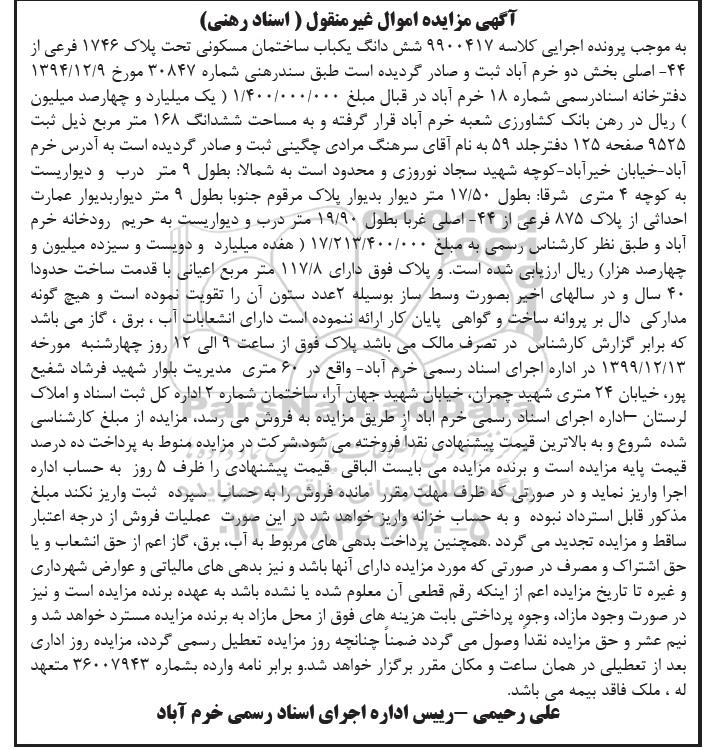 آگهی مزایده اموال غیرمنقول ( اسناد رهنی)
به موجب پرونده اجرایی کلاسه ۹۹۰۰۴۱۷ شش دانگ یکباب ساختمان مسکونی تحت پلاک ۱۷۴۶ فرعی از
۴۴- اصلی بخش دو خرم آباد ثبت و صادر گردیده است طبق سندرهنی شماره ۳۰۸۴۷ مورخ ۱۳۹۴/۱۲/۹
دفترخانه اسنادرسمی شماره ۱۸ خرم آباد در قبال مبلغ ۱/۴۰۰/۰۰۰/۰۰۰ ( یک میلیارد و چهارصد میلیون
) ریال در رهن بانک کشاورزی شعبه خرم آباد قرار گرفته و به مساحت ششدانگ ۱۶۸ متر مربع ذیل ثبت
۹۵۲۵ صفحه ۱۲۵ دفترجلد ۵۹ به نام آقای سرهنگ مرادی چگینی ثبت و صادر گردیده است به آدرس خرم
آباد-خیابان خیرآباد-کوچه شهید سجاد نوروزی و محدود است به شمالا: بطول ۹ متر درب و دیواریست
به کوچه ۴ متری شرقا: بطول ۱۷/۵۰ متر دیوار بدیوار پلاک مرقوم جنوبا بطول ۹ متر دیواربدیوار عمارت
احداثی از پلاک ۸۷۵ فرعی از ۴۴- اصلی غربا بطول ۱۹/۹۰ متر درب و دیواریست به حریم رودخانه خرم
آباد و طبق نظر کارشناس رسمی به مبلغ ۱۷/۲۱۳/۴۰۰/۰۰۰ ( هفده میلیارد و دویست و سیزده میلیون و
چهارصد هزار) ریال ارزیابی شده است. و پلاک فوق دارای ۱۱۷/۸ متر مربع اعیانی با قدمت ساخت حدودا
۴۰ سال و در سالهای اخیر بصورت وسط ساز بوسیله ۲عدد ستون آن را تقویت نموده است و هیچ گونه
مدارکی دال بر پروانه ساخت و گواهی پایان کار ارائه ننموده است دارای انشعابات آب ، برق ، گاز می باشد
که برابر گزارش کارشناس در تصرف مالک می باشد پلاک فوق از ساعت ۹ الی ۱۲ روز چهارشنبه مورخه
۱۳۹۹/۱۲/۱۳ در اداره اجرای اسناد رسمی خرم آباد- واقع در ۶۰ متری مدیریت بلوار شهید فرشاد شفیع
پور، خیابان ۲۴ متری شهید چمران، خیابان شهید جهان آرا، ساختمان شماره ۲ اداره کل ثبت اسناد و املاک
لرستان –اداره اجرای اسناد رسمی خرم آباد از طریق مزایده به فروش می رسد، مزایده از مبلغ کارشناسی
شده شروع و به بالاترین قیمت پیشنهادی نقداً فروخته می شود.شرکت در مزایده منوط به پرداخت ده درصد
قیمت پایه مزایده است و برنده مزایده می بایست الباقی قیمت پیشنهادی را ظرف ۵ روز به حساب اداره
اجرا واریز نماید و در صورتی که ظرف مهلت مقرر مانده فروش را به حساب سپرده ثبت واریز نکند مبلغ
مذکور قابل استرداد نبوده و به حساب خزانه واریز خواهد شد در این صورت عملیات فروش از درجه اعتبار
ساقط و مزایده تجدید می گردد .همچنین پرداخت بدهی های مربوط به آب، برق، گاز اعم از حق انشعاب و یا
حق اشتراک و مصرف در صورتی که مورد مزایده دارای آنها باشد و نیز بدهی های مالیاتی و عوارض شهرداری
و غیره تا تاریخ مزایده اعم از اینکه رقم قطعی آن معلوم شده یا نشده باشد به عهده برنده مزایده است و نیز
در صورت وجود مازاد، وجوه پرداختی بابت هزینه های فوق از محل مازاد به برنده مزایده مسترد خواهد شد و
نیم عشر و حق مزایده نقداً وصول می گردد ضمناً چنانچه روز مزایده تعطیل رسمی گردد، مزایده روز اداری
بعد از تعطیلی در همان ساعت و مکان مقرر برگزار خواهد شد.و برابر نامه وارده بشماره ۳۶۰۰۷۹۴۳ متعهد
له ، ملک فاقد بیمه می باشد.
علی رحیمی –رییس اداره اجرای اسناد رسمی خرم آباد
ParsNamadData
پایگاه اطلاع رسانی مناقصه و مزایده
۰۲۱-۸۸۳۴۹۶۷۰-۵